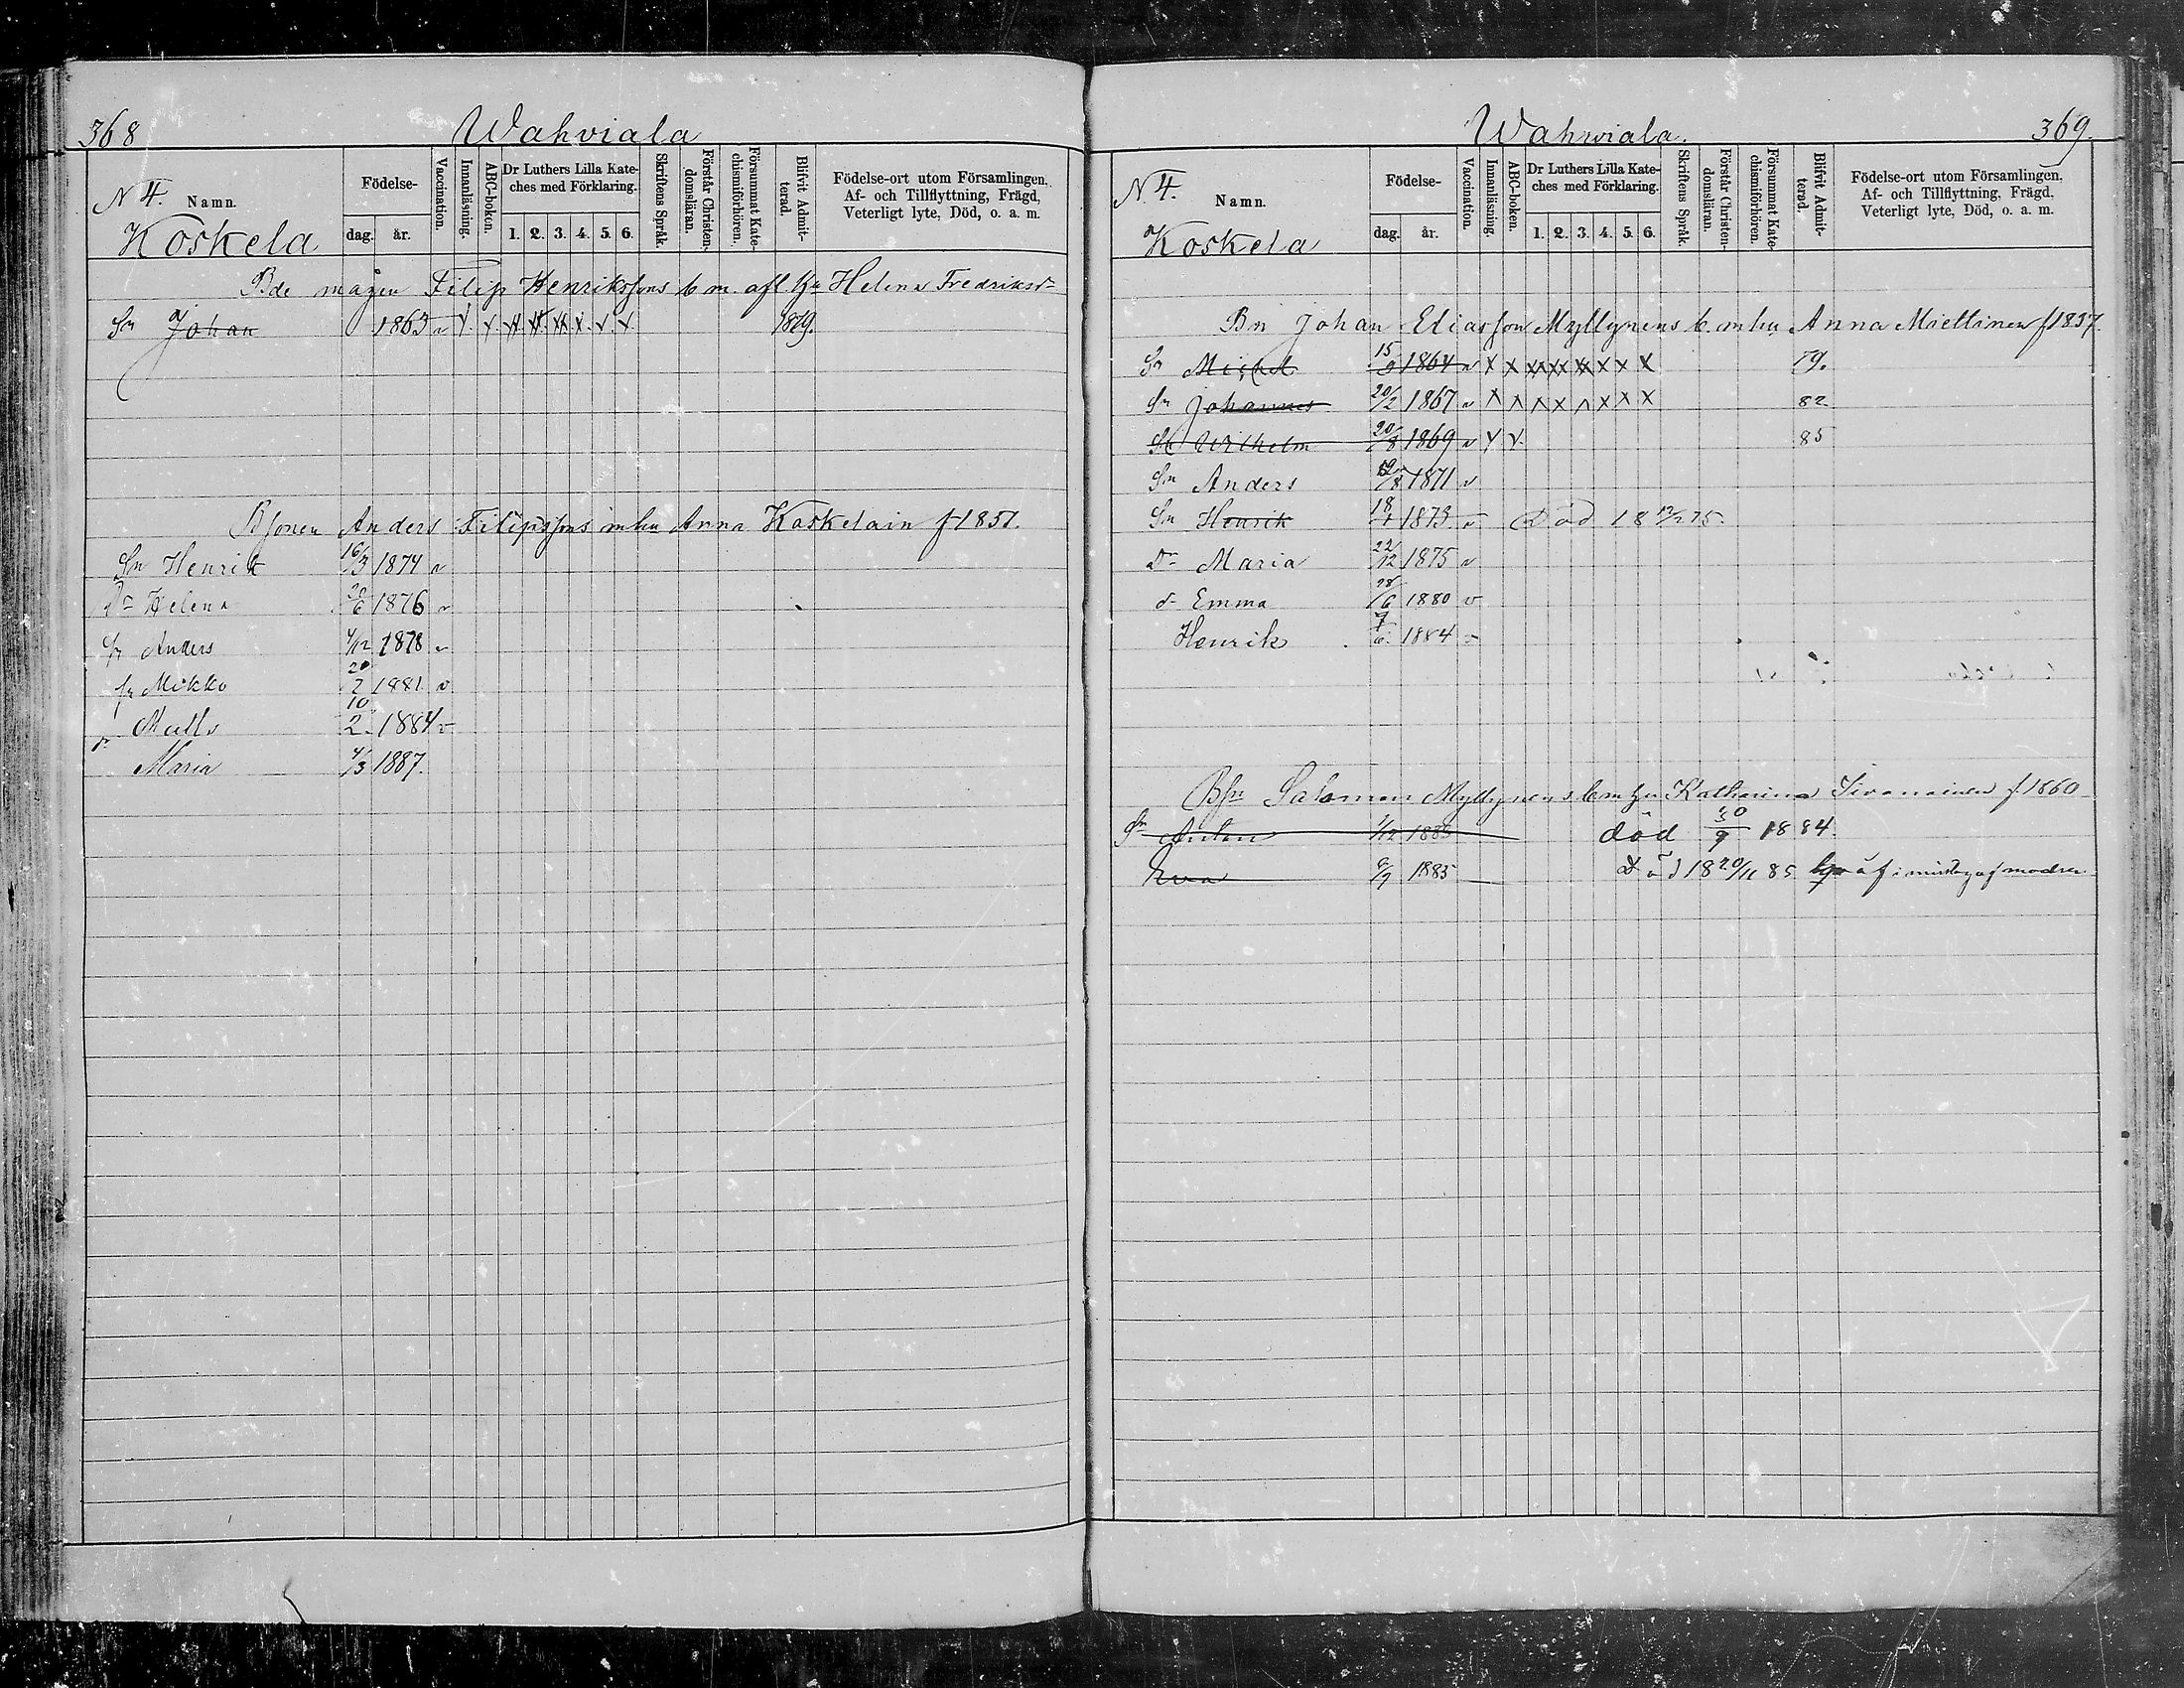 368 Wahviala
N 4. Namn.
Koskela
Födelse-
dag. år.
Vaccination.
Innanläsning.
ABC-boken.
Dr Luthers Lilla Kate-
ches med Förklaring.
1. 2. 3. 4. 5. 6.
Skriftens Språk.
Förstår Christen-
domsläran.
Försummat Kate-
chismiförhören.
Blifvit Admit-
terad.
Födelse-ort utom Församlingen,
Af- och Tillflyttning, Frägd,
Veterligt lyte, Död, o. a. m.
Bde mågen Filip Henrikssons b m. afl. hu Helena Fredriksdr
Sn Johan 1863 v x x x x x x x x 1879.
Bsonen Anders Filipssons m hu Anna Koskelain f 1851.
Sn Henrik 16/3 1874 v
Dr Helena 20/6 1876 v
Sn Anders 4/12 1878 v
Sn Mikko 20/7 1881 v
Matts 10/2 1884 v
dr Maria 4/3 1887.
Wahviala. 369.
N. 4. Namn.
Koskela
Födelse-
dag. år.
Vaccination.
Innanläsning.
ABC-boken.
Dr Luthers Lilla Kate-
ches med Förklaring.
1. 2. 3. 4. 5. 6.
Skriftens Språk.
Förstår Christen-
domsläran.
Försummat Kate-
chismiförhören.
Blifvit Admit-
terad.
Födelse-ort utom Församlingen,
Af- och Tillflyttning, Frägd,
Veterligt lyte, Död, o. a. m.
Bn Johan Eliasson Myllynens b. m hu Anna Miettinen f 1837.
Sn Michel 1864 v x x x x x x x x 79.
Sn Johannes 20/2 1867 v x x x x x x x x 82
Sn Wilhelm 20/8 1869 v x x 85
Sn Anders 1871 v
Sn Henrik 1873 v Död 18 12/2 75.
Dr Maria 22/12 1875 v
dr Emma 28/6 1880 v
Henrik 7/6 1884 v
Bsn Salomon Myllynens b m hu Katharina Sivonainen f. 1860
Sn Anton 1/12 1883 död 30/9 1884.
Eva 6/9 1885 Död 18 20/11 85 af modren